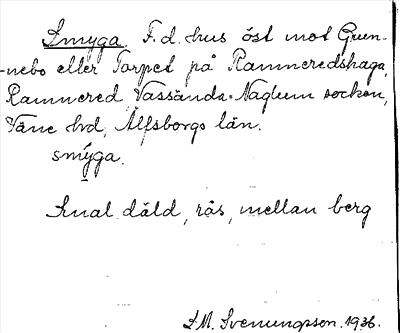 Smyga. F.d. hus öst mot Grun-
-nebo eller Torpet på Ramneredshaga,
Ramnered, Vassända-Naglum socken,
Väne hrd, Älfsborgs län.
smýga.
Smal däld, rås, mellan berg
S.M. Svenungsson. 1936.